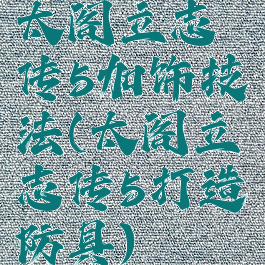 太阁立志
传5加饰技
法(太阁立
志传5打造
防具)